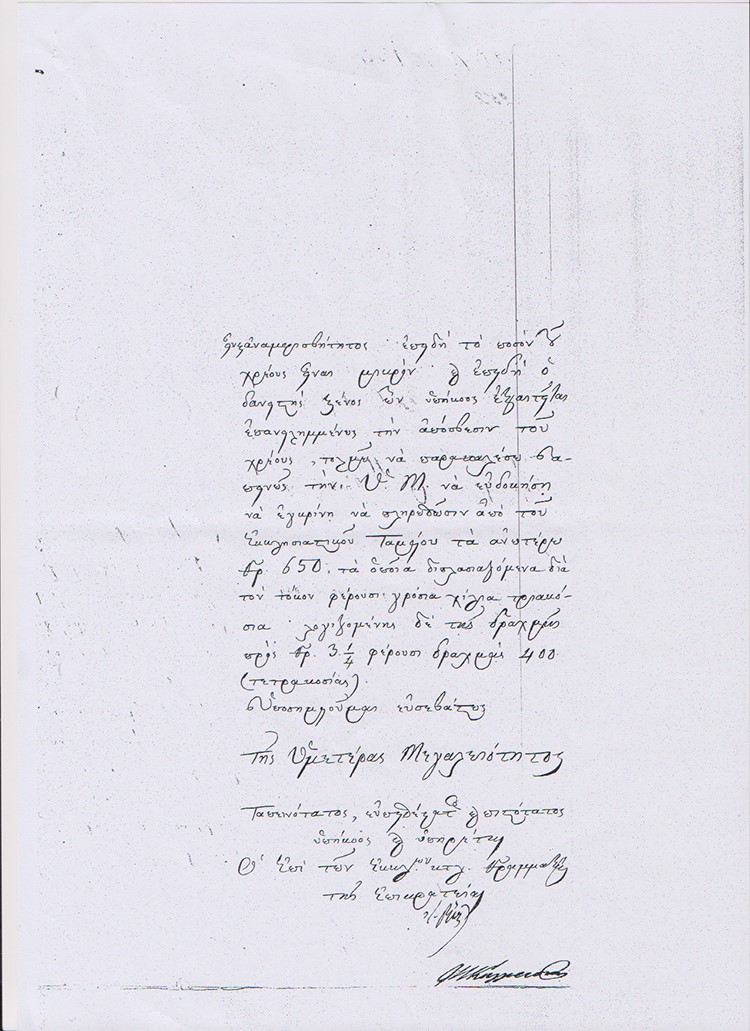 ἐπειδὴ τὸ ποσὸν τοῦ
χρέους εἶναι μικρόν· καὶ ἐπειδὴ ὁ
δανειστὴς ξένος ὢν ὑπήκοος ἐξαιτεῖται
ἐπανειλημμένως τὴν ἀπόσβεσιν τοῦ
χρέους, τολμῶ νὰ παρακαλέσω τα-
πεινῶς τὴν Ὑ. Μ. νὰ εὐδοκήσῃ
νὰ ἐγκρίνῃ νὰ πληρωθῶσιν ἀπὸ τοῦ
Ἐκκλησιαστικοῦ Ταμείου τὰ ἀνωτέρω
γρ. 650. τὰ ὁποῖα διπλασιαζόμενα διὰ
τὸν τόκον φέρουσι γρόσια χίλια τριακό-
σια· λογιζομένης δὲ τῆς δραχμῆς
πρὸς γρ. 3 1/4 φέρουσι δραχμὰς 400.
(τετρακοσίας).
Ὑποσημειοῦμαι εὐσεβάστως
Τῆς Ὑμετέρας Μεγαλειότητος
Ταπεινότατος, εὐπειθέστατος καὶ πιστότατος
ὑπήκοος καὶ ὑπηρέτης
Ὁ Ἐπὶ τῶν Ἐκκλ.ῶν κτλ. Γραμματεὺς
τῆς Ἐπικρατείας